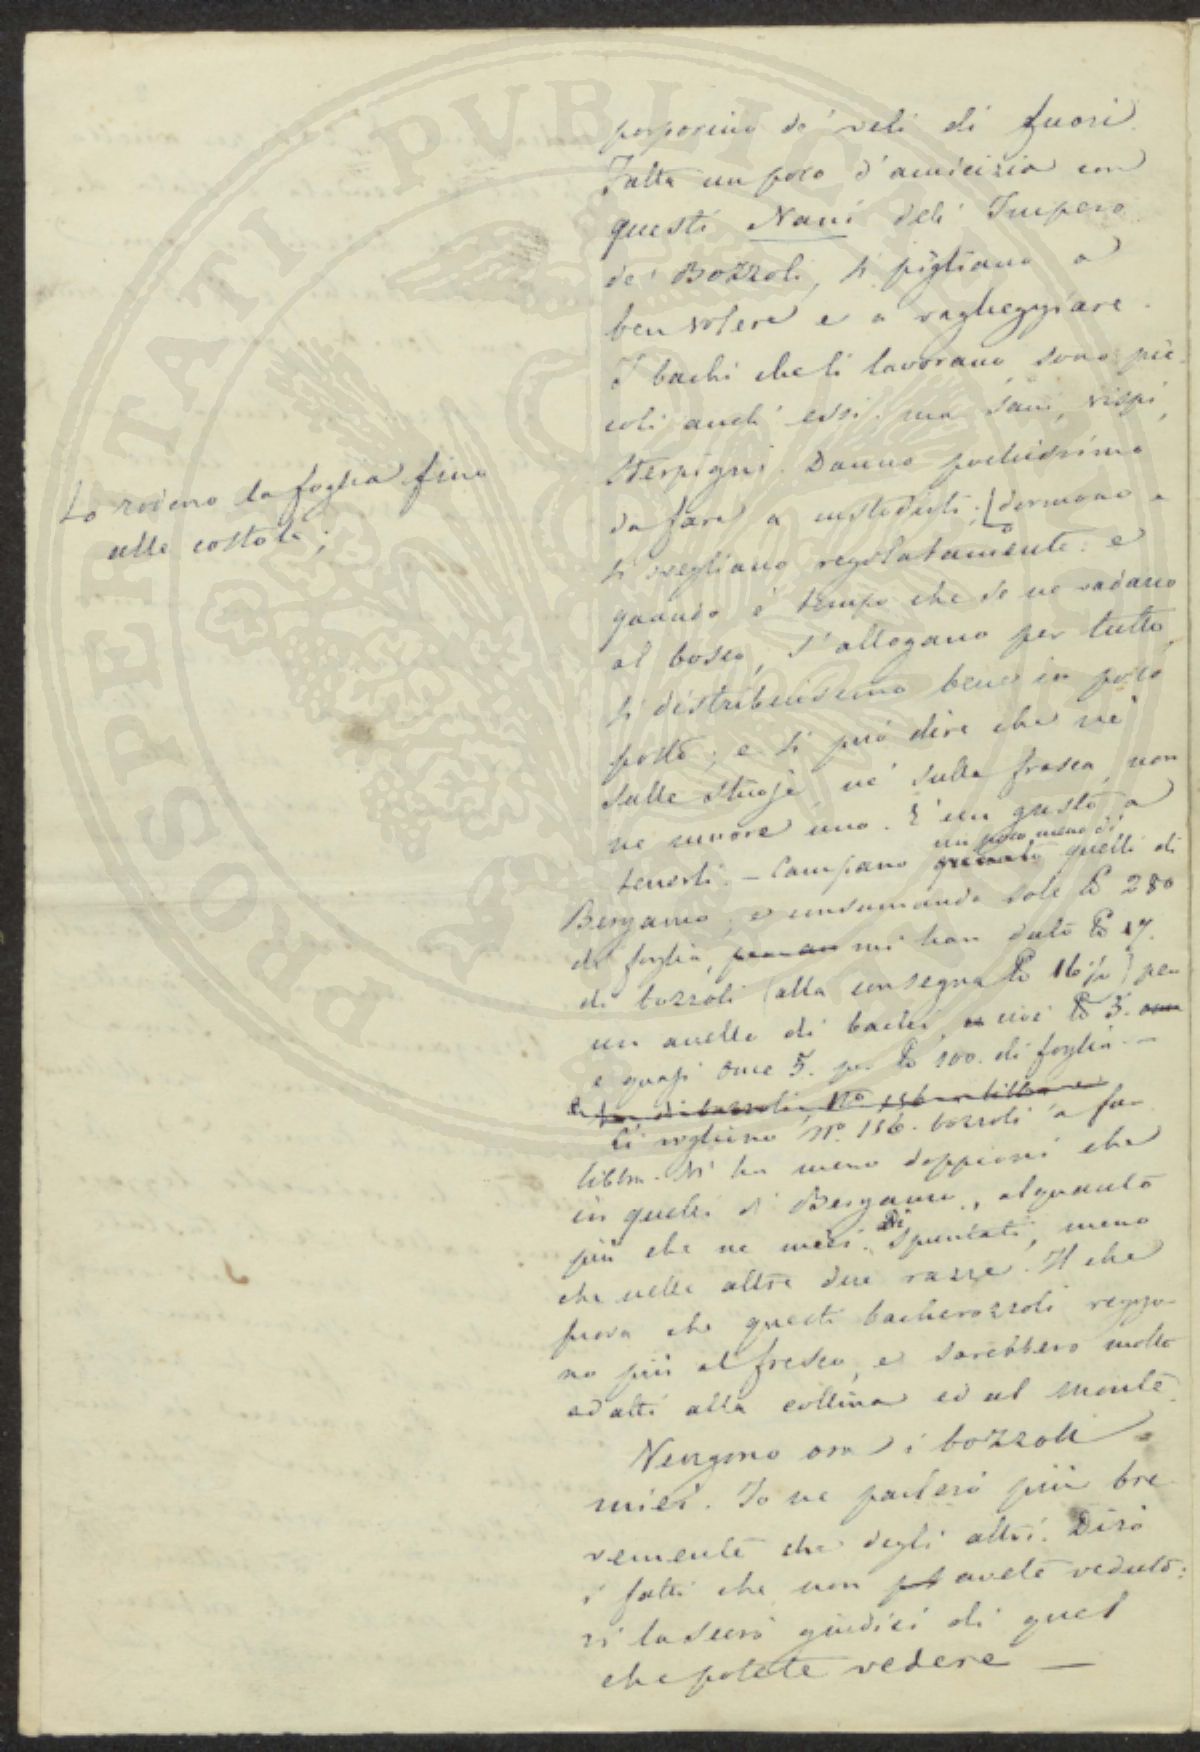 porporino de' veli di fuori.
Fatta un poco d'amicizia con
questi Nani dell' Impero
de' Bozzoli, si pigliano a
ben volere e a vagheggiare.
I bachi che li lavorano sono pic-
coli anch' essi: ma sani, vispi,
sterpigni. Danno pochissimo
da fare a custodirli; dormono e
si svegliano regolatamente: e
quando è tempo che se ne vadano
al bosco, s'allogano per tutto,
si distribuiscono bene in poco
posto; e si può dire che nè
sulle stuoje nè sulla frasca, non
ne muore uno. È un gusto a
tenerli. – Campano un poco meno di quelli di
Bergamo; e consumando sole ℔ 280
di foglia, mi han dato ℔ 17.
di bozzoli (alla consegna ℔ 16½) per
un anello di bachi, cioè ℔ 5.
e quasi once 5. per ℔ 100. di foglia. –
Ci vogliono Nº. 156. bozzoli a far
libbra. Vi ha meno doppioni che
in quelli di Bergamo, alquanto
più che ne miei. Di spuntati, meno
che nelle altre due razze. Il che
prova che questi bacherozzoli reggo-
no più al fresco, e sarebbero molto
adatti alla collina ed al monte.
Vengono ora i bozzoli
miei. Io ne parlerò più bre-
vemente che degli altri. Dirò
i fatti che non avete veduto:
vi lascerò giudici di quel
che potete vedere —
Lo rodono la foglia fino
alle costole;